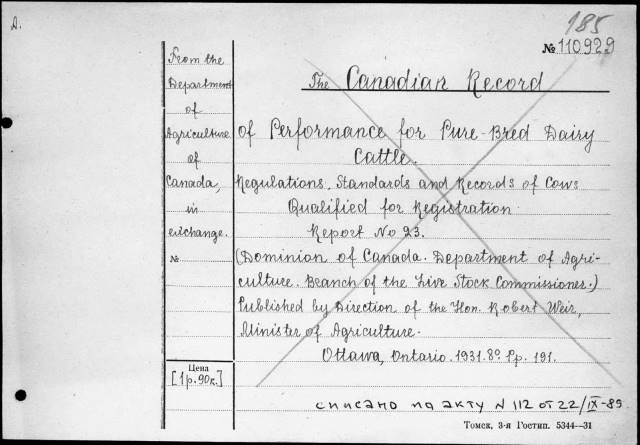 А.
185
№ 110929
From the
Department
of
Agriculture
of
Canada,
in
exchange.
№
The Canadian Record
of Performance for Pure-Bred Dairy
Cattle.
Regulations, Standards and Records of Cows
Qualified for Registration
Report No 23.
(Dominion of Canada. Department of Agri-
culture. Branch of the Live Stock Commissioner.)
Published by Direction of the Hon. Robert Weir,
Minister of Agriculture.
Ottawa, Ontario. 1931. 8º. Pp. 191.
Цена
[1 р. 90 к.]
списано по акту N 112 от 22/IX-85
Томск, 3-я Гостип. 5344—31